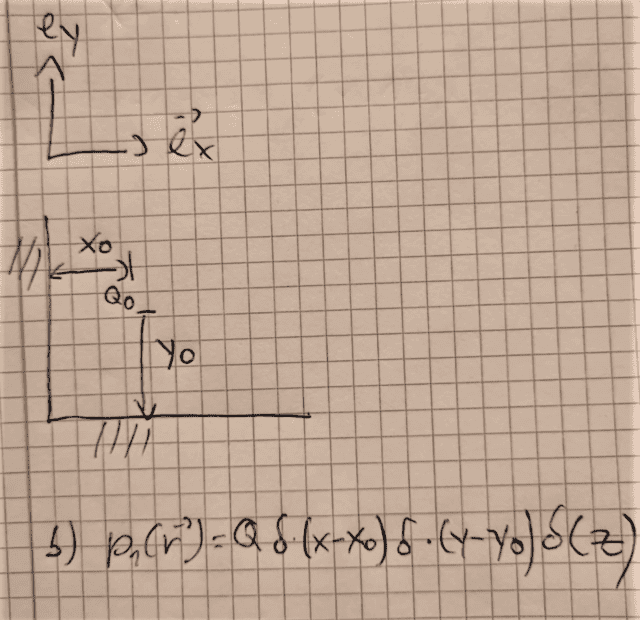 ey
e⃗x
x0
Q0
y0
b) ρ1(r⃗) = Q δ·(x-x0) δ·(y-y0) δ(z)